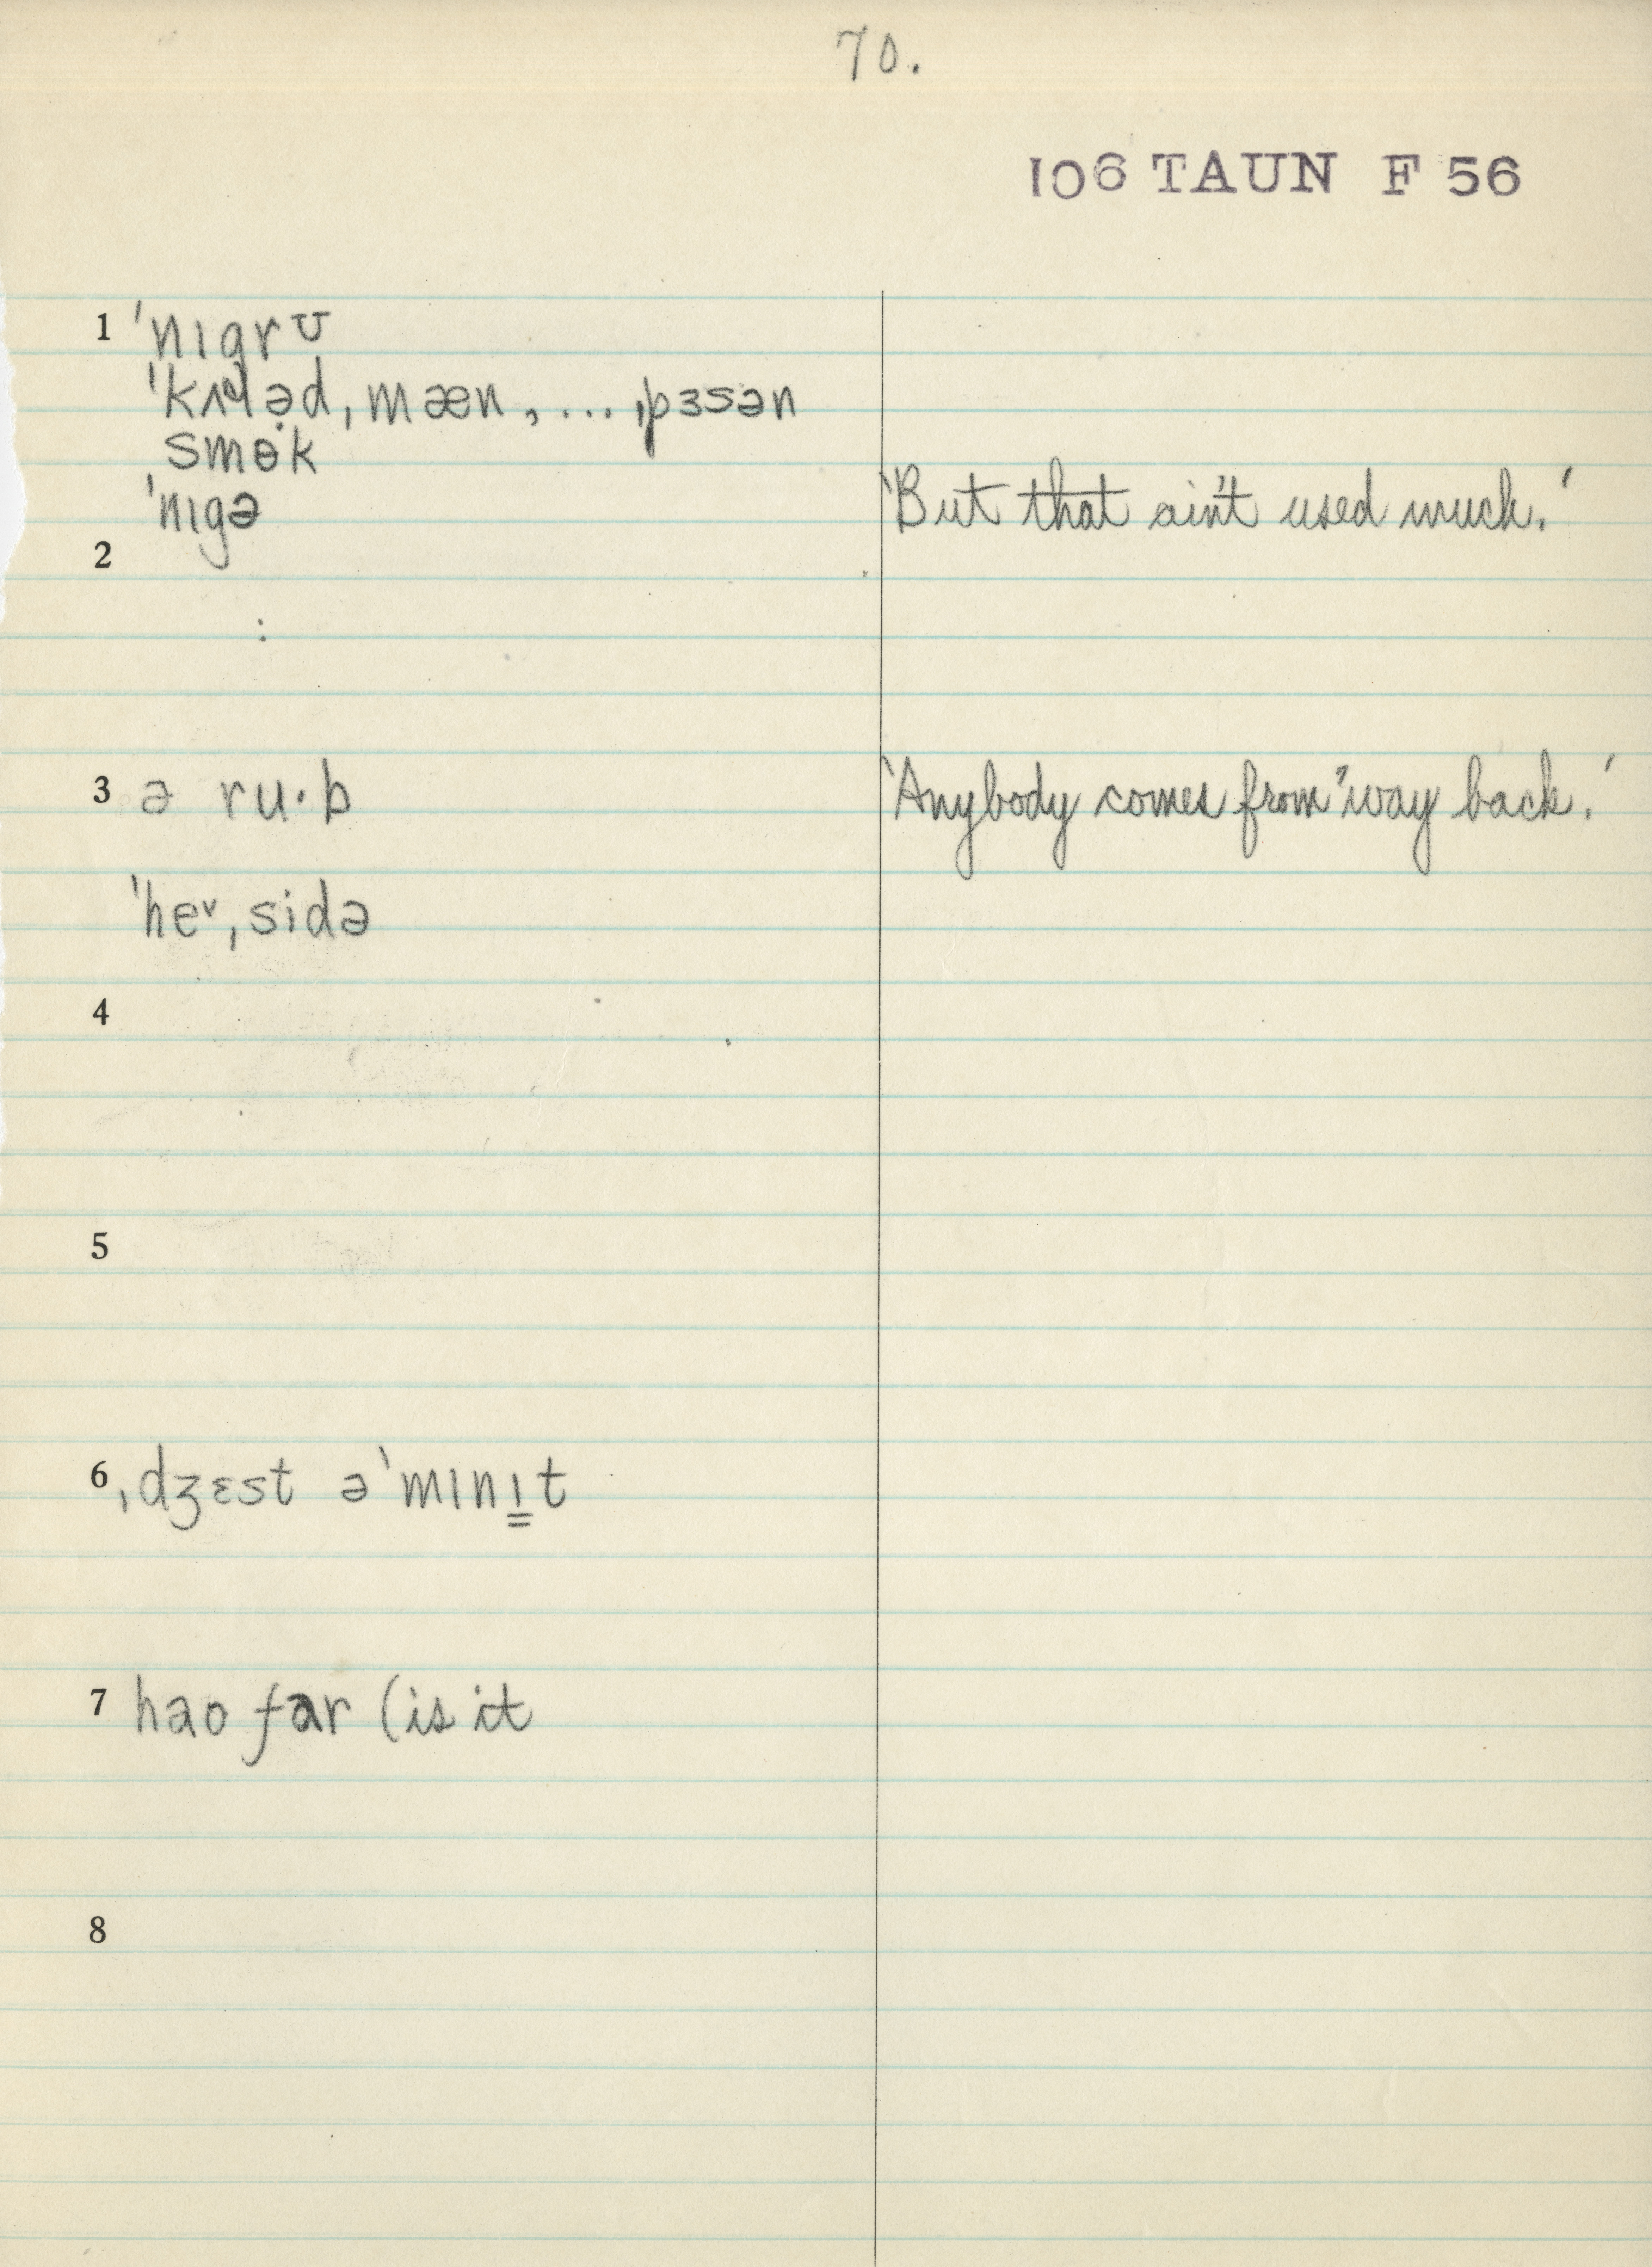 70.
106 TAUN F 56
1 ˈnɪgrʊ
ˈkʌləd ˌmæn, ... ˌpɜsən
smɵ·k
ˈnɪgə 'But that ain't used much.'
2
:
3 ə ru·b 'Anybody comes from 'way back.'
ˈhe˅ˌsidə
4
5
6 ˌdʒɛst əˈmɪnɪ̳t
7 haʊ far (is it
8